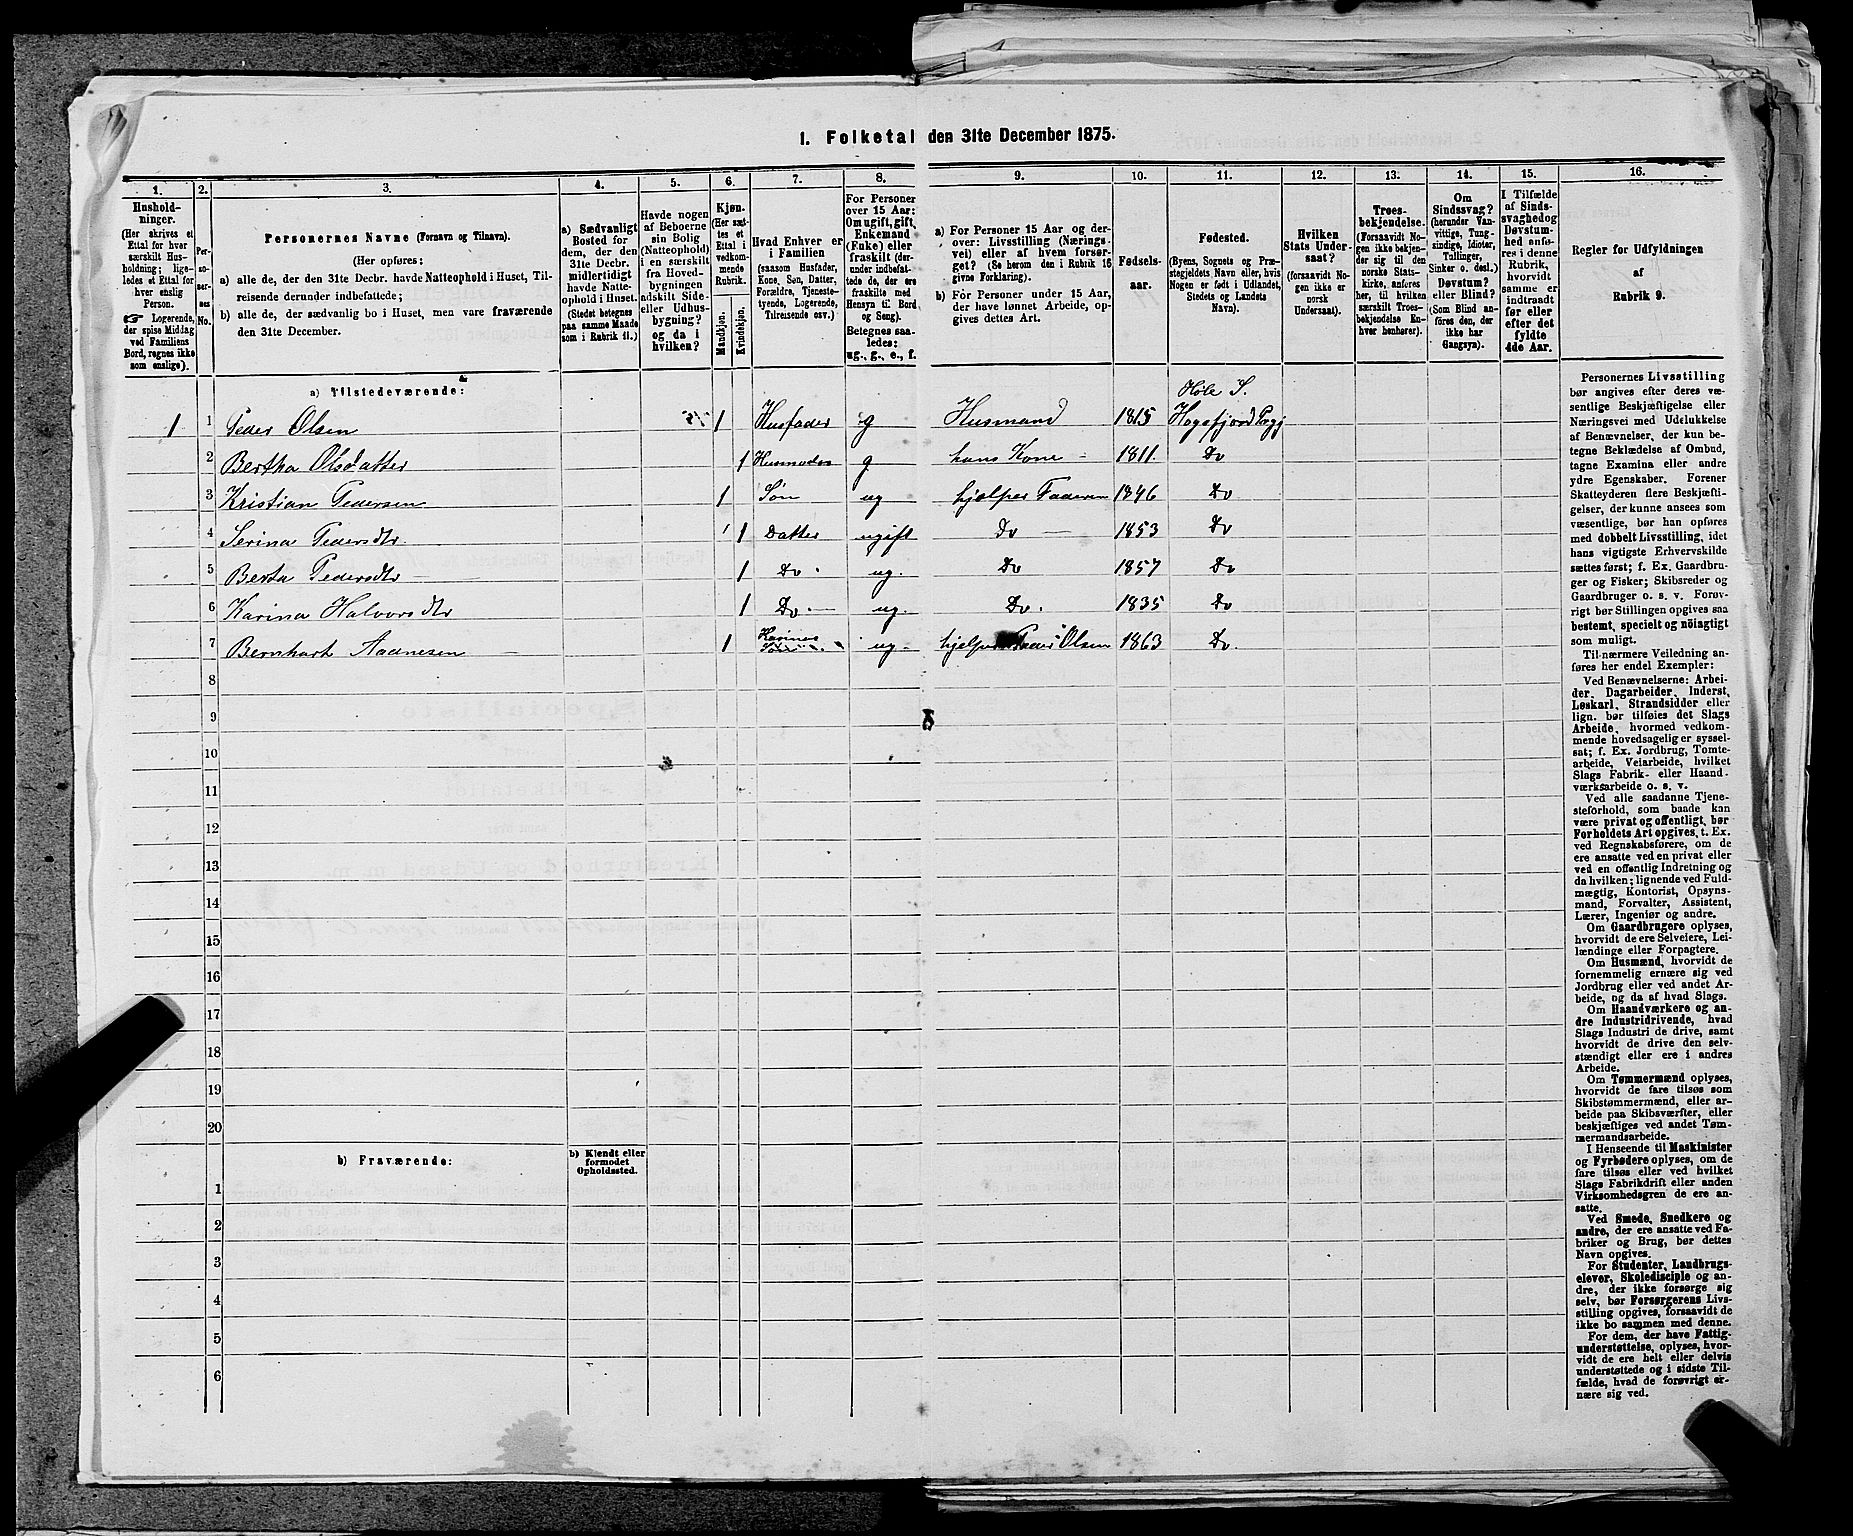 1. Folketal den 31te December 1875.
1. 2. 3. 4. 5. 6. 7. 8. 9. 10. 11. 12. 13. 14. 15. 16.
Hushold-
ninger.
(Her skrives et
Ettal for hver
særskilt Hus-
holdning; lige-
ledes et Ettal for
hver enslig
Person.
☞ Logerende,
der spise Middag
ved Familiens
Bord, regnes ikke
som enslige).
Per-
so-
ner-
nes
No.
Personernes Navne (Fornavn og Tilnavn).
(Her opføres:
a) alle de, der den 31te Decbr. havde Natteophold i Huset, Til-
reisende derunder indbefattede;
b) alle de, der sædvanlig bo i Huset, men vare fraværende
den 31te December.
a) Sædvanligt
Bosted for
dem, der den
31te Decbr.
midlertidigt
havde Natte-
ophold i Huset.
(Stedet betegnes
paa samme Maade
som i Rubrik 11.)
Havde nogen
af Beboerne
sin Bolig
(Natteophold)
i en særskilt
fra Hoved-
bygningen
adskilt Side-
eller Udhus-
bygning?
og da i
hvilken?
Kjøn.
(Her sæt-
tes et
Ettal i
vedkom-
mende
Rubrik.
Mandkjøn.
Kvindekjøn.
Hvad Enhver er
i Familien
(saasom Husfader,
Kone, Søn, Datter,
Forældre, Tjeneste-
tyende, Logerende,
Tilreisende osv.)
For Personer
over 15 Aar:
Om ugift, gift,
Enkemand
(Enke) eller
fraskilt (der-
under indbefat-
tede de, der ere
fraskilte med
Hensyn til Bord
og Seng).
Betegnes saa-
ledes:
ug., g., e., f.
a) For Personer 15 Aar og der-
over: Livsstilling (Nærings-
vei) eller af hvem forsør-
get? (Se herom den i Rubrik 16
givne Forklaring).
b) For Personer under 15 Aar,
der have lønnet Arbeide, op-
gives dettes Art.
Fødsels-
aar.
Fødested.
(Byens, Sognets og Præ-
stegjeldets Navn eller, hvis
Nogen er født i Udlandet,
Stedets og Landets
Navn).
Hvilken
Stats Under-
saat?
(forsaavidt No-
gen ikke er
norsk
Undersaat).
Troes-
bekjendelse.
(Forsaavidt No-
gen ikke bekjen-
der sig til den
norske Stats-
kirke, anføres
her, til hvilken
særskilt Troes-
bekjendelse En-
hver henhører).
Om
Sindssvag?
(herunder Van-
vittige, Tung-
sindige, Idioter,
Tullinger,
Sinker o. desl.)
Døvstum?
eller Blind?
(Som Blind an-
føres den, der
ikke har
Gangsyn).
I Tilfælde
af Sinds-
svaghed og
Døvstum-
hed anfø-
res i denne
Rubrik,
hvorvidt
samme er
indtraadt
før eller
efter det
fyldte
4de Aar.
Regler for Udfyldningen
af
Rubrik 9.
a) Tilstedeværende:
Høle S.
1 1 Peder Olsen 1 Husfader g Husmand 1815 Høgsfjord Prgj
2 Bertha Olsdatter 1 Husmoder g hans Kone - 1811. Do
3 Kristian Pedersen 1 Søn ug hjelper Faderen 1846 Do
4 Serina Pedersdtr. 1 Datter ugift Do — 1853 Do
5 Berta Pedersdtr — 1 Do - ug. Do 1857 Do
6 Karina Halvorsdtr 1 Do - ug. Do. 1835 Do
7 Bernhart Aadnesen — 1 Karines Søn ug - hjelper Peder Olsen 1863 Do.
8
9
10
11
12
13
14
15
16
17
18
19
20
b) Fraværende:
b) Kjendt eller
formodet
Opholdssted.
1
2
3
4
5
6
Personernes Livsstilling
bør angives efter deres væ-
sentlige Beskjæftigelse eller
Næringsvei med Udelukkelse
af Benævnelser, der kun be-
tegne Beklædelse af Ombud,
tagne Examina eller andre
ydre Egenskaber. Forener
Skatteyderen flere Beskjæfti-
gelser, der kunne ansees som
væsentlige, bør han opføres
med dobbelt Livsstilling, idet
hans vigtigste Erhvervskilde
sættes først; f. Ex. Gaardbru-
ger og Fisker; Skibsreder og
Gaardbruger o. s. v. Forøv-
rigt bør Stillingen opgives saa
bestemt, specielt og nöiagtigt
som muligt.
Til nærmere Veiledning an-
føres her endel Exempler:
Ved Benævnelserne: Arbei-
der, Dagarbeider, Inderst,
Løskarl, Strandsidder eller
lign. bør tilføies det Slags
Arbeide, hvormed vedkom-
mende hovedsagelig er syssel-
sat; f. Ex. Jordbrug, Tomte-
arbeide, Veiarbeide, hvilket
Slags Fabrik- eller Haand-
værksarbeide o. s. v.
Ved alle saadanne Tjene-
steforhold, som baade kan
være privat og offentligt, bør
Forholdets Art opgives, t. Ex.
ved Regnskabsførere, om de
ere ansatte ved en privat eller
ved en offentlig Indretning og
da hvilken; lignende ved Fuld-
mægtig, Kontorist, Opsyns-
mand, Forvalter, Assistent,
Lærer, Ingeniør og andre.
Om Gaardbrugere oplyses,
hvorvidt de ere Selveiere, Lei-
lændinge eller Forpagtere.
Om Husmænd, hvorvidt de
fornemmelig ernære sig ved
Jordbrug eller ved andet Ar-
beide, og da af hvad Slags.
Om Haandværkere og an-
dre Industridrivende, hvad
Slags Industri de drive, samt
hvorvidt de drive den selv-
stændigt eller ere i andres
Arbeide.
Om Tømmermænd oplyses,
hvorvidt de fare tilsøs som
Skibstømmermænd, eller ar-
beide paa Skibsværfter, eller
beskjæftiges ved andet Tøm-
mermandsarbeide.
I Henseende til Maskinister
og Fyrbødere oplyses, om de
fare tilsøs eller ved hvilket
Slags Fabrikdrift eller anden
Virksomhedsgren de ere an-
satte.
Ved Smede, Snedkere og
andre, der ere ansatte ved Fa-
briker og Brug, bør dettes
Navn opgives.
For Studenter, Landbrugs-
elever, Skoledisciple og an-
dre, der ikke forsørge sig
selv, bør Forsørgerens Livs-
stilling opgives, forsaavidt de
ikke bo sammen med denne.
For dem, der have Fattig-
understøttelse, oplyses, hvor-
vidt de ere helt eller delvis
understøttede og i sidste Til-
fælde, hvad de forøvrigt er-
nære sig ved.